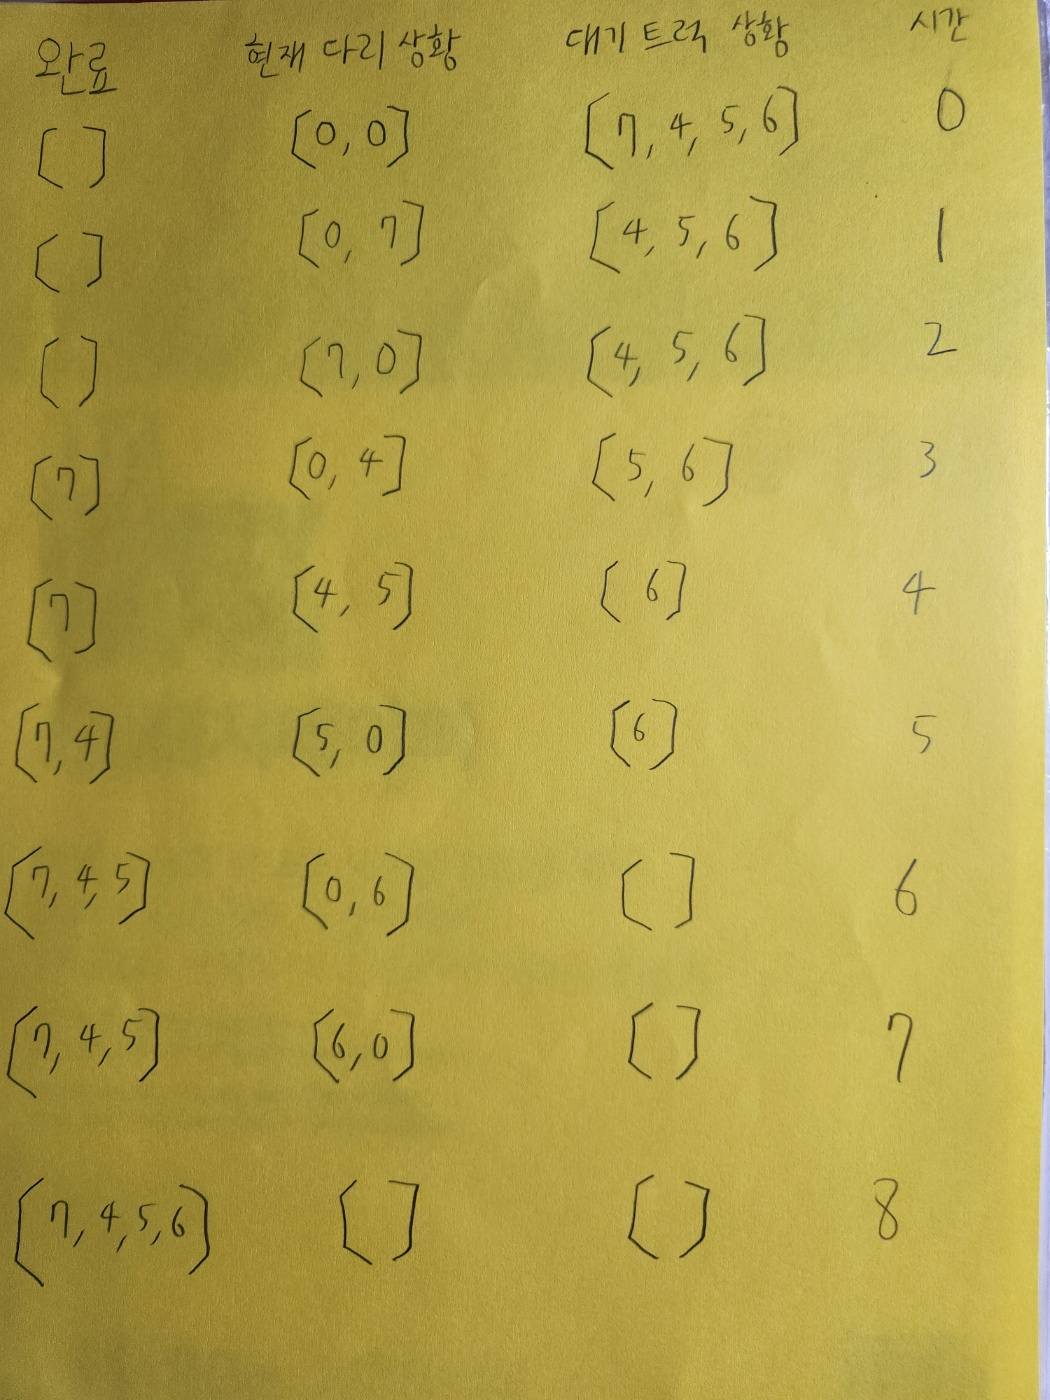 완료 현재 다리 상황 대기 트럭 상황 시간
[ ] [0, 0] [7, 4, 5, 6] 0
[ ] [0, 7] [4, 5, 6] 1
[ ] [7, 0] [4, 5, 6] 2
[7] [0, 4] [5, 6] 3
[7] [4, 5] [6] 4
[7, 4] [5, 0] [6] 5
[7, 4, 5] [0, 6] [ ] 6
[7, 4, 5] [6, 0] [ ] 7
[7, 4, 5, 6] [ ] [ ] 8